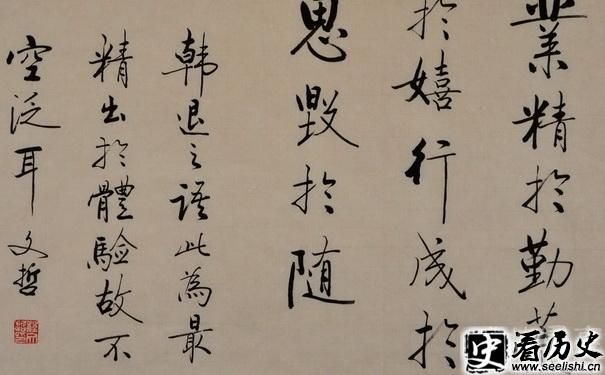 業精於勤荒
於嬉行成於
思毀於隨
韓退之語此為最
精出於體驗故不
空泛耳 文哲
史看历史
www.seelishi.cn